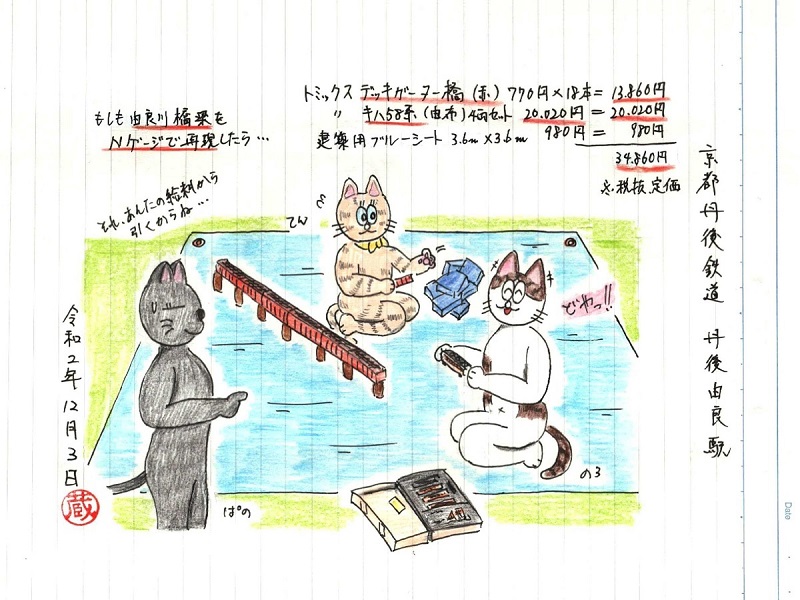 トミックス デッキガーダー橋 (赤) 770円×18本= 13.860円
〃 キハ58系 (由布) 4両セット 20.020円 = 20.020円
建築用ブルーシート 3.6m×3.6m 980円 = 980円
34.860円
※税抜定価
もしも由良川橋梁を
Nゲージで再現したら…
それ、あんたの給料から
引くからね…
てん
どやっ!!
のろ
ぱの
京都丹後鉄道 丹後由良駅
令和2年12月3日
蔵
Date